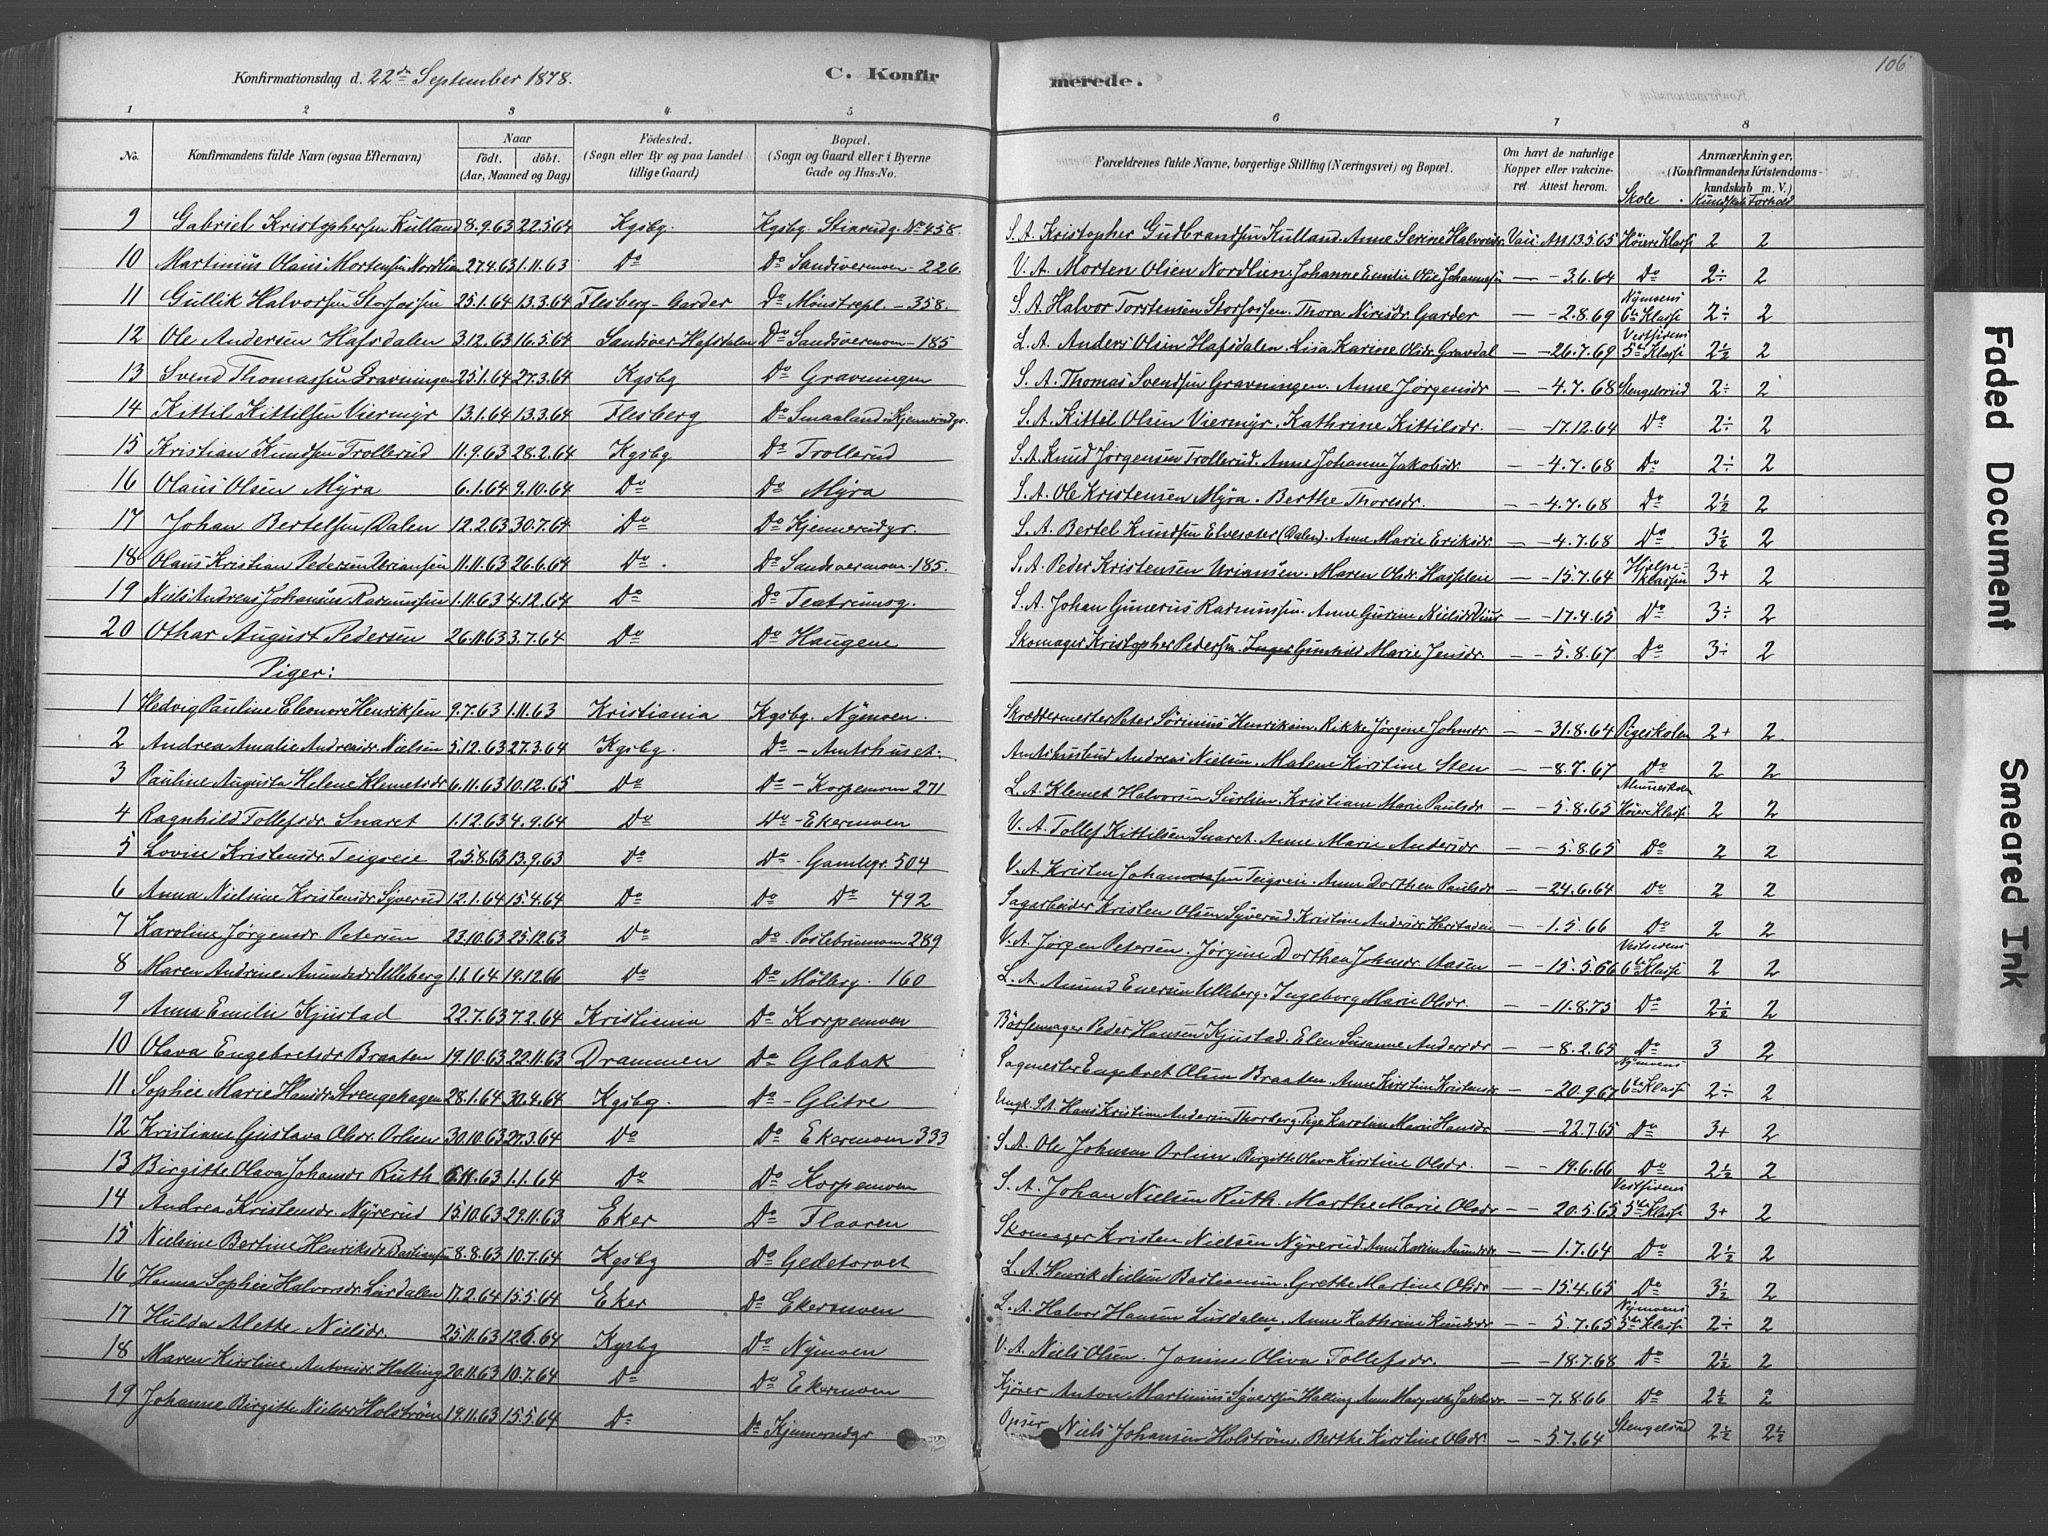 106
Konfirmationsdag d. 22de September 1878.
C. Konfirmerede.
1 2 3 4 5 6 7 8
No. Konfirmandens fulde Navn (ogsaa Efternavn) Naar født. døbt. (Aar, Maaned og Dag) Fødested. (Sogn eller By og paa Landet tillige Gaard) Bopæl. (Sogn og Gaard eller i Byerne Gade og Hus-No. Forældrenes fulde Navne, borgerlige Stilling (Næringsvei) og Bopæl. Om havt de naturlige Kopper eller vakcineret Attest herom. Anmærkninger, (Konfirmandens Kristendomskundskab m. V.) Skole Kundskab Forhold
9 Gabriel Kristophersen Kulland 8.9.63 22.5.64 Kgsbg. Kgsbg. No 458. S. A. Kristopher Gudbrandsen Kulland. Anne Serine Halvorsdr. Vac. Att 13.5.65 Høiere Klasse 2 2
10 Martinius Olaus Mortensen Nordlien 27.4.63 1.11.63 Do Do Sandsværmoen - 226. V. A. Morten Olsen Nordlien. Johanne Emilie - 3.6.64 Do 2÷ 2
11 Gullik Halvorsen 25.1.64 13.3.64 Flesberg - Garder Do Mønstrepl. - 358. S. A. Halvor Torstensen Thora Nirisdr Garder - 2.8.69 Nymoens 6te Klasse 2÷ 2
12 Ole Andersen Hafsdalen 3.12.63 16.5.64 Sandsver Hafsdalen Do Sandsværmoen - 185 L. A. Anders Olsen Hafsdalen. Lisa Karine Olsdr Gravdal - 26.7.69 Vestsidens 5te Klasse 2½ 2
13 Svend Thomassen Gravningen 25.1.64 27.3.64 Kgsbg Do Gravningen S. A. Thomas Svendsen Gravningen. Anne Jørgensdr - 4.7.68 Stengelsrud 2÷ 2
14 Kittil Kittilsen Viermyr 13.1.64 13.3.64 Flesberg Do Smaaland i Kjennerudgr. S. A. Kittil Olsen Viermyr. Kathrine Kittilsdr. - 17.12.64 Do 2÷ 2
15 Kristian Knudsen Trollerud 11.9.63 28.2.64 Kgsbg Do Trollerud S. A. Knud Jørgensen Trollerud. Anne Johanne Jakobsdr. - 4.7.68 Do 2÷ 2
16 Olaus Olsen Myra 6.1.64 9.10.64 Do Do Myra S. A. Ole Kristensen Myra. Berthe Thoresdr. - 4.7.68 Do 2½ 2
17 Johan Bertelsen Dalen 12.2.63 30.7.64 Do Do Kjennerudgr. S. A. Bertel Knudsen Elvesæter (Dalen). Anne Marie Eriksdr - 4.7.68 Do 3½ 2
18 Olaus Kristian Pedersen Uriansen 11.11.63 26.6.64 Do Do Sandsværmoen - 185. S. A. Peder Kristensen Uriansen. Maren Olsdr - 15.7.64 Hjelpeklassen 3+ 2
19 Niels Andreas Johansen Rasmussen 1.11.63 4.12.64 Do Do Teatrumsg. S. A. Johan Gunerus Rasmussen. Anne Gurine Nielsdr - 17.4.65 Do 3÷ 2
20 Othar August Pedersen 26.11.63 3.7.64 Do Do Haugene Skomager Kristopher Pedersen. Gunhild Marie Jensdr. - 5.8.67 Do 3÷ 2
Piger:
1 Hedvig Pauline Eleonore Henriksen 9.7.63 1.11.63 Kristiania Kgsbg. Nymoen. Skræddermester Peter Sørinius Henriksen. Rikke Jørgine Johnsdr - 31.8.64 Pigeskolen 2+ 2
2 Andrea Amalie Andreasdr Nielsen 5.12.63 27.3.64 Kgsbg. Do - Amtshuset. Amtshusbud Andreas Nielsen. Malene Kirstine Sten - 8.7.67 Do 2 2
3 Pauline Augusta Helene Klemetsdr 6.11.63 10.12.65 Do Do - Korpemoen 271 L. A. Klemet Halvorsen Kristiane Marie Paulsdr - 5.8.65 Høiere Klasse 2 2
4 Ragnhild Tollefsdr. Snaret 1.12.63 4.9.64 Do Do - Ekermoen V. A. Tollef Kittilsen Snaret. Anne Marie Andersdr - 5.8.65 Do 2 2
5 Lovise Kristensdr Teigreie 25.8.63 13.9.63 Do Do - Gamlegr. 504 V. A. Kristen Johannessen Teigreie. Anne Dorthea Paulsdr - 24.6.64 Do 2 2
6 Anna Nielsine Kristensdr Syverud 12.1.64 15.4.64 Do Do Do 492 Sagarbeider Kristen Olsen Syverud. Kristine Andersdr - 1.5.66 Do 2 2
7 Karoline Jørgensdr Petersen 23.10.63 25.12.63 Do Do 289 V. A. Jørgen Petersen. Jørgine Dorthea Johnsdr Aasen - 15.5.66 Vestsidens 6te Klasse 2 2
8 Maren Andrine Amundsdr Ulleberg 1.1.64 19.12.66 Do Do Mølbrg. 160 L. A. Amund Enersen Ulleberg. Ingeborg Marie Olsdr. - 11.8.75 Do 2½ 2
9 Anna Emilie Kjustad 22.7.63 7.2.64 Kristiania Do Korpemoen Børsemager Peder Hansen Kjustad. Elen Susanne Andersdr - 8.2.65 Do 3 2
10 Olava Engebretsdr Braaten 19.10.63 22.11.63 Drammen Do Glabak Sagmester Engebret Olsen Braaten. Anne Kirstine Kristensdr - 20.9.67 Nymoens 6te Klasse 2÷ 2
11 Sophie Marie Hansdr Strengehagen 28.1.64 30.4.64 Kgsbg. Do - Glitre Ungk. S. A. Hans Kristian Andersen Thorberg. Pige Karoline Marie Hansdr - 22.7.65 Do 3+ 2
12 Kristiane Gustava Olsdr. Orlien 30.10.63 27.3.64 Do Do Ekermoen 333 S. A. Ole Johnsen Orlien. Birgitte Olava Kirstine Olsdr. - 19.6.66 Do 2½ 2
13 Birgitte Olava Johansdr Ruth 6.11.63 1.1.64 Do Do Korpemoen S. A. Johan Nielsen Ruth. Marthe Marie Olsdr - 20.5.65 Vestsidens 5te Klasse 3+ 2
14 Andrea Kristensdr. Nyrerud 15.10.63 29.11.63 Eker Do Flaaren Skomager Kristen Nielsen Nyrerud. Anne Karine Amundsdr - 1.7.64 Do 2½ 2
15 Nielsine Bertine Henriksdr Bastiansen 8.8.63 10.7.64 Kgsbg Do Gedetorvet L. A. Henrik Nielsen Bastiansen. Grethe Martine Olsdr - 15.4.65 Do 3½ 2
16 Hanna Sophie Halvorsdr. Lursdalen 17.2.64 15.5.64 Eker Do Ekermoen L. A. Halvor Hansen Lursdalen. Anne Kathrine Knudsdr - 5.7.65 Nymoens 5te Klasse 2÷ 2
17 Hulda Alette Nielsdr. 25.11.63 12.6.64 Kgsbg Do Nymoen V. A. Niels Olsen. Jonine Oliva Tollefsdr. - 18.7.68 Do 2½ 2
18 Maren Kirstine Antonsdr Halling 20.11.63 10.7.64 Do Do Ekermoen Kjører Anton Martinius Syversen Halling. Anne Margrethe Jakobsdr - 7.8.66 Do 2½ 2
19 Johanne Birgitte Nielsdr Holstrøm 19.11.63 15.5.64 Do Do Kjennerudgr Opser Niels Johansen Holstrøm. Berthe Kirstine Olsdr. - 5.7.64 Stengelsrud 2½ 2½
Faded Document
Smeared Ink